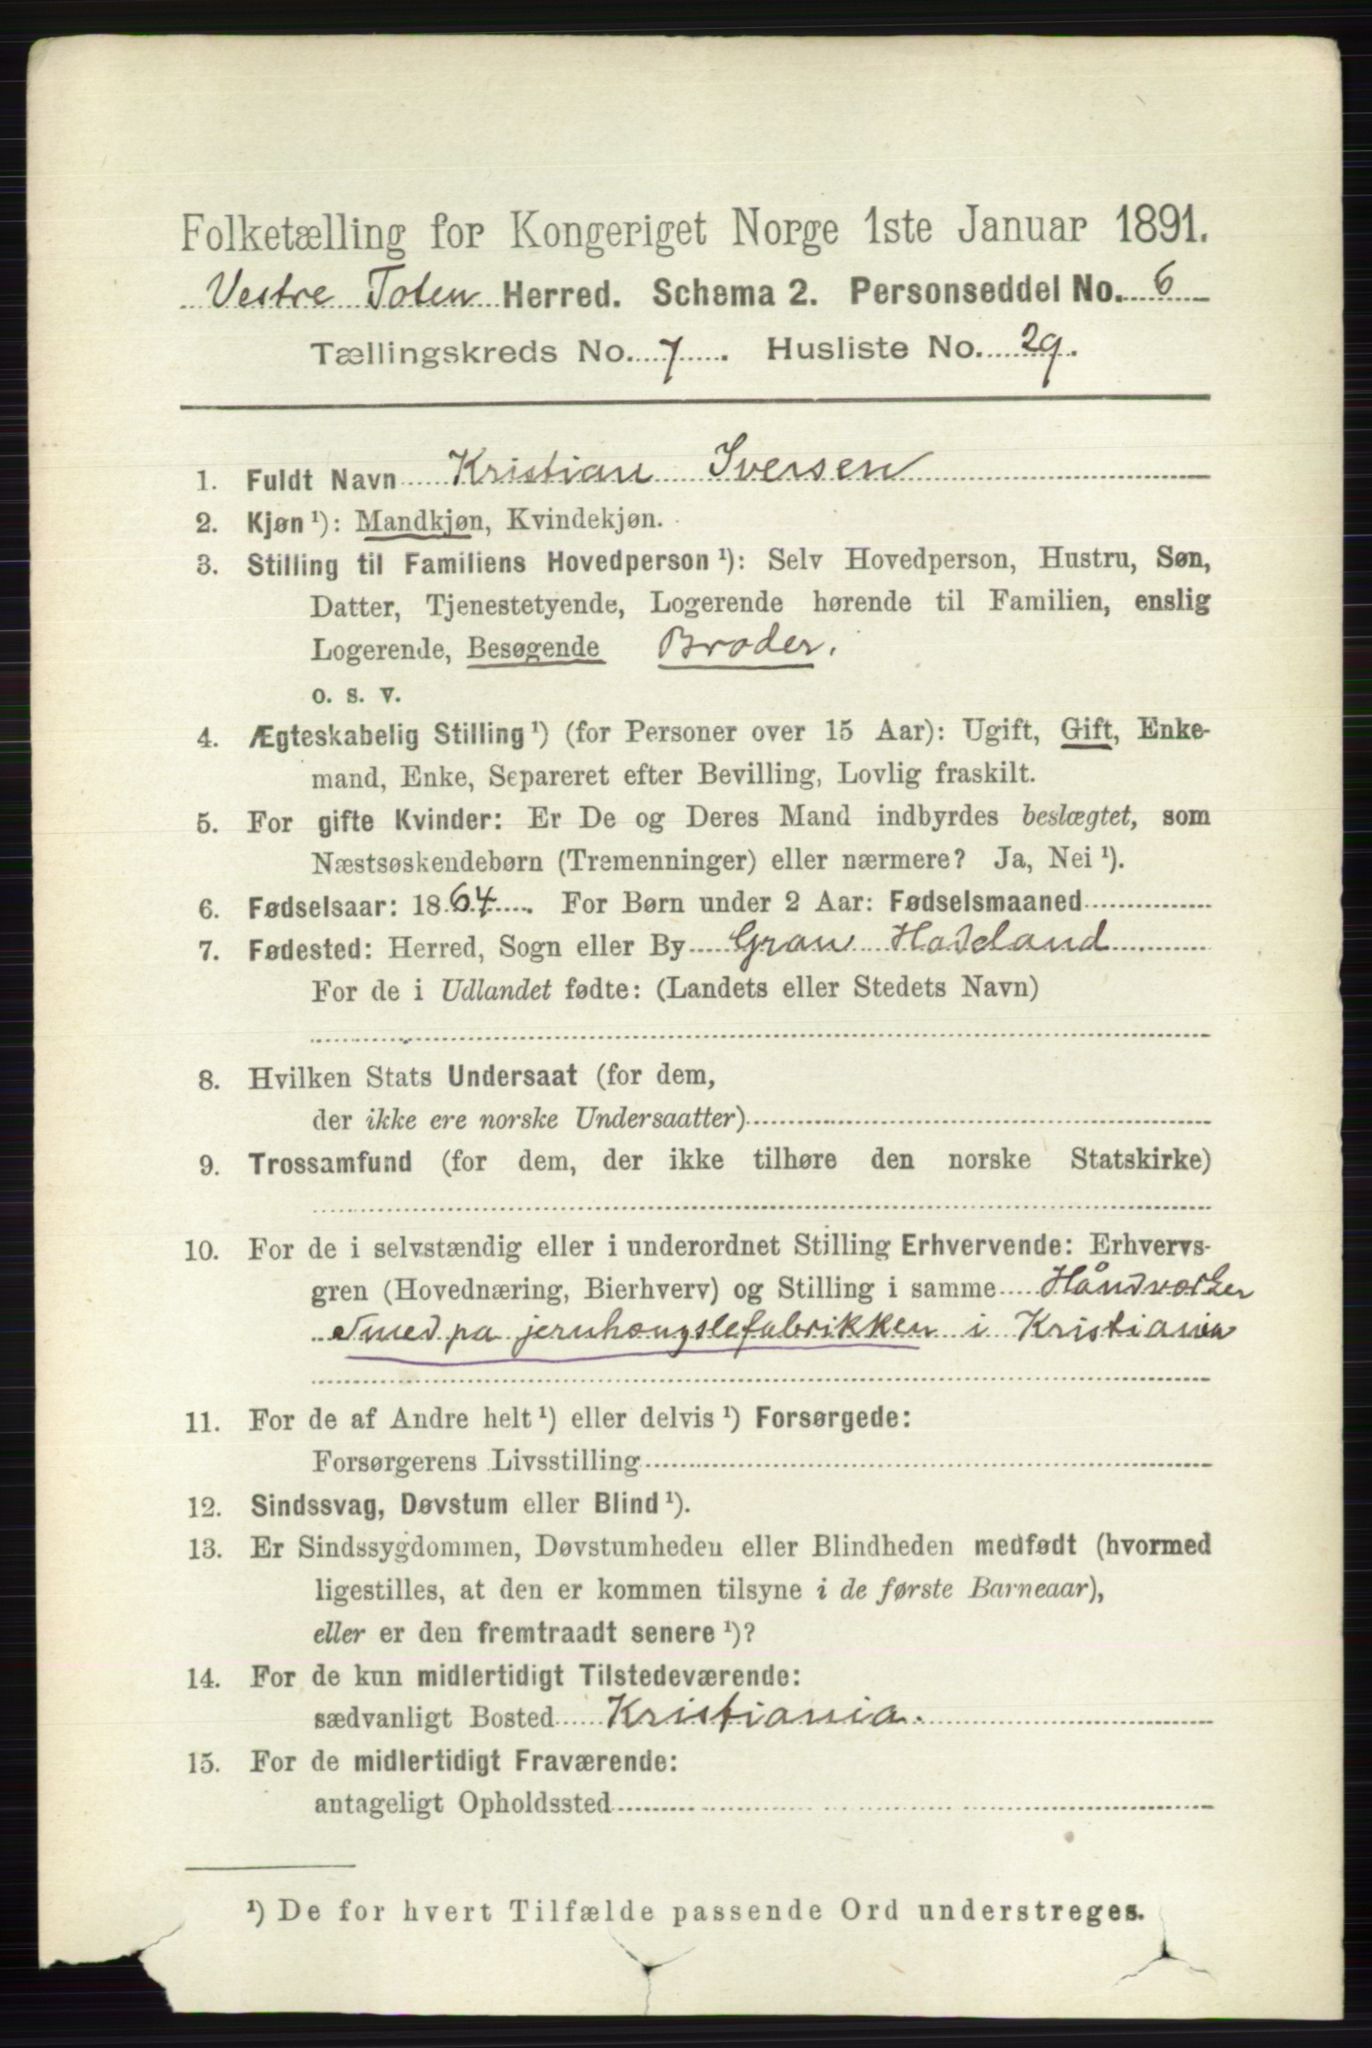 Folketælling for Kongeriget Norge 1ste Januar 1891.
Vestre Toten Herred. Schema 2. Personseddel No. 6
Tællingskreds No. 7. Husliste No. 29.
1. Fuldt Navn Kristian Iversen
2. Kjøn ¹): Mandkjøn, Kvindekjøn.
3. Stilling til Familiens Hovedperson ¹): Selv Hovedperson, Hustru, Søn,
Datter, Tjenestetyende, Logerende hørende til Familien, enslig
Logerende, Besøgende Broder.
o. s. v.
4. Ægteskabelig Stilling ¹) (for Personer over 15 Aar): Ugift, Gift, Enke-
mand, Enke, Separeret efter Bevilling, Lovlig fraskilt.
5. For gifte Kvinder: Er De og Deres Mand indbyrdes beslægtet, som
Næstsøskendebørn (Tremenninger) eller nærmere? Ja, Nei ¹).
6. Fødselsaar: 1864. For Børn under 2 Aar: Fødselsmaaned
7. Fødested: Herred, Sogn eller By Gran Hadeland
For de i Udlandet fødte: (Landets eller Stedets Navn)
8. Hvilken Stats Undersaat (for dem,
der ikke ere norske Undersaatter)
9. Trossamfund (for dem, der ikke tilhøre den norske Statskirke)
10. For de i selvstændig eller i underordnet Stilling Erhvervende: Erhvervs-
gren (Hovednæring, Bierhverv) og Stilling i samme Håndværker
smed på jernhængslefabrikken i Kristiania
11. For de af Andre helt ¹) eller delvis ¹) Forsørgede:
Forsørgerens Livsstilling
12. Sindssvag, Døvstum eller Blind ¹).
13. Er Sindssygdommen, Døvstumheden eller Blindheden medfødt (hvormed
ligestilles, at den er kommen tilsyne i de første Barneaar),
eller er den fremtraadt senere ¹)?
14. For de kun midlertidigt Tilstedeværende:
sædvanligt Bosted Kristiania.
15. For de midlertidigt Fraværende:
antageligt Opholdssted
¹) De for hvert Tilfælde passende Ord understreges.